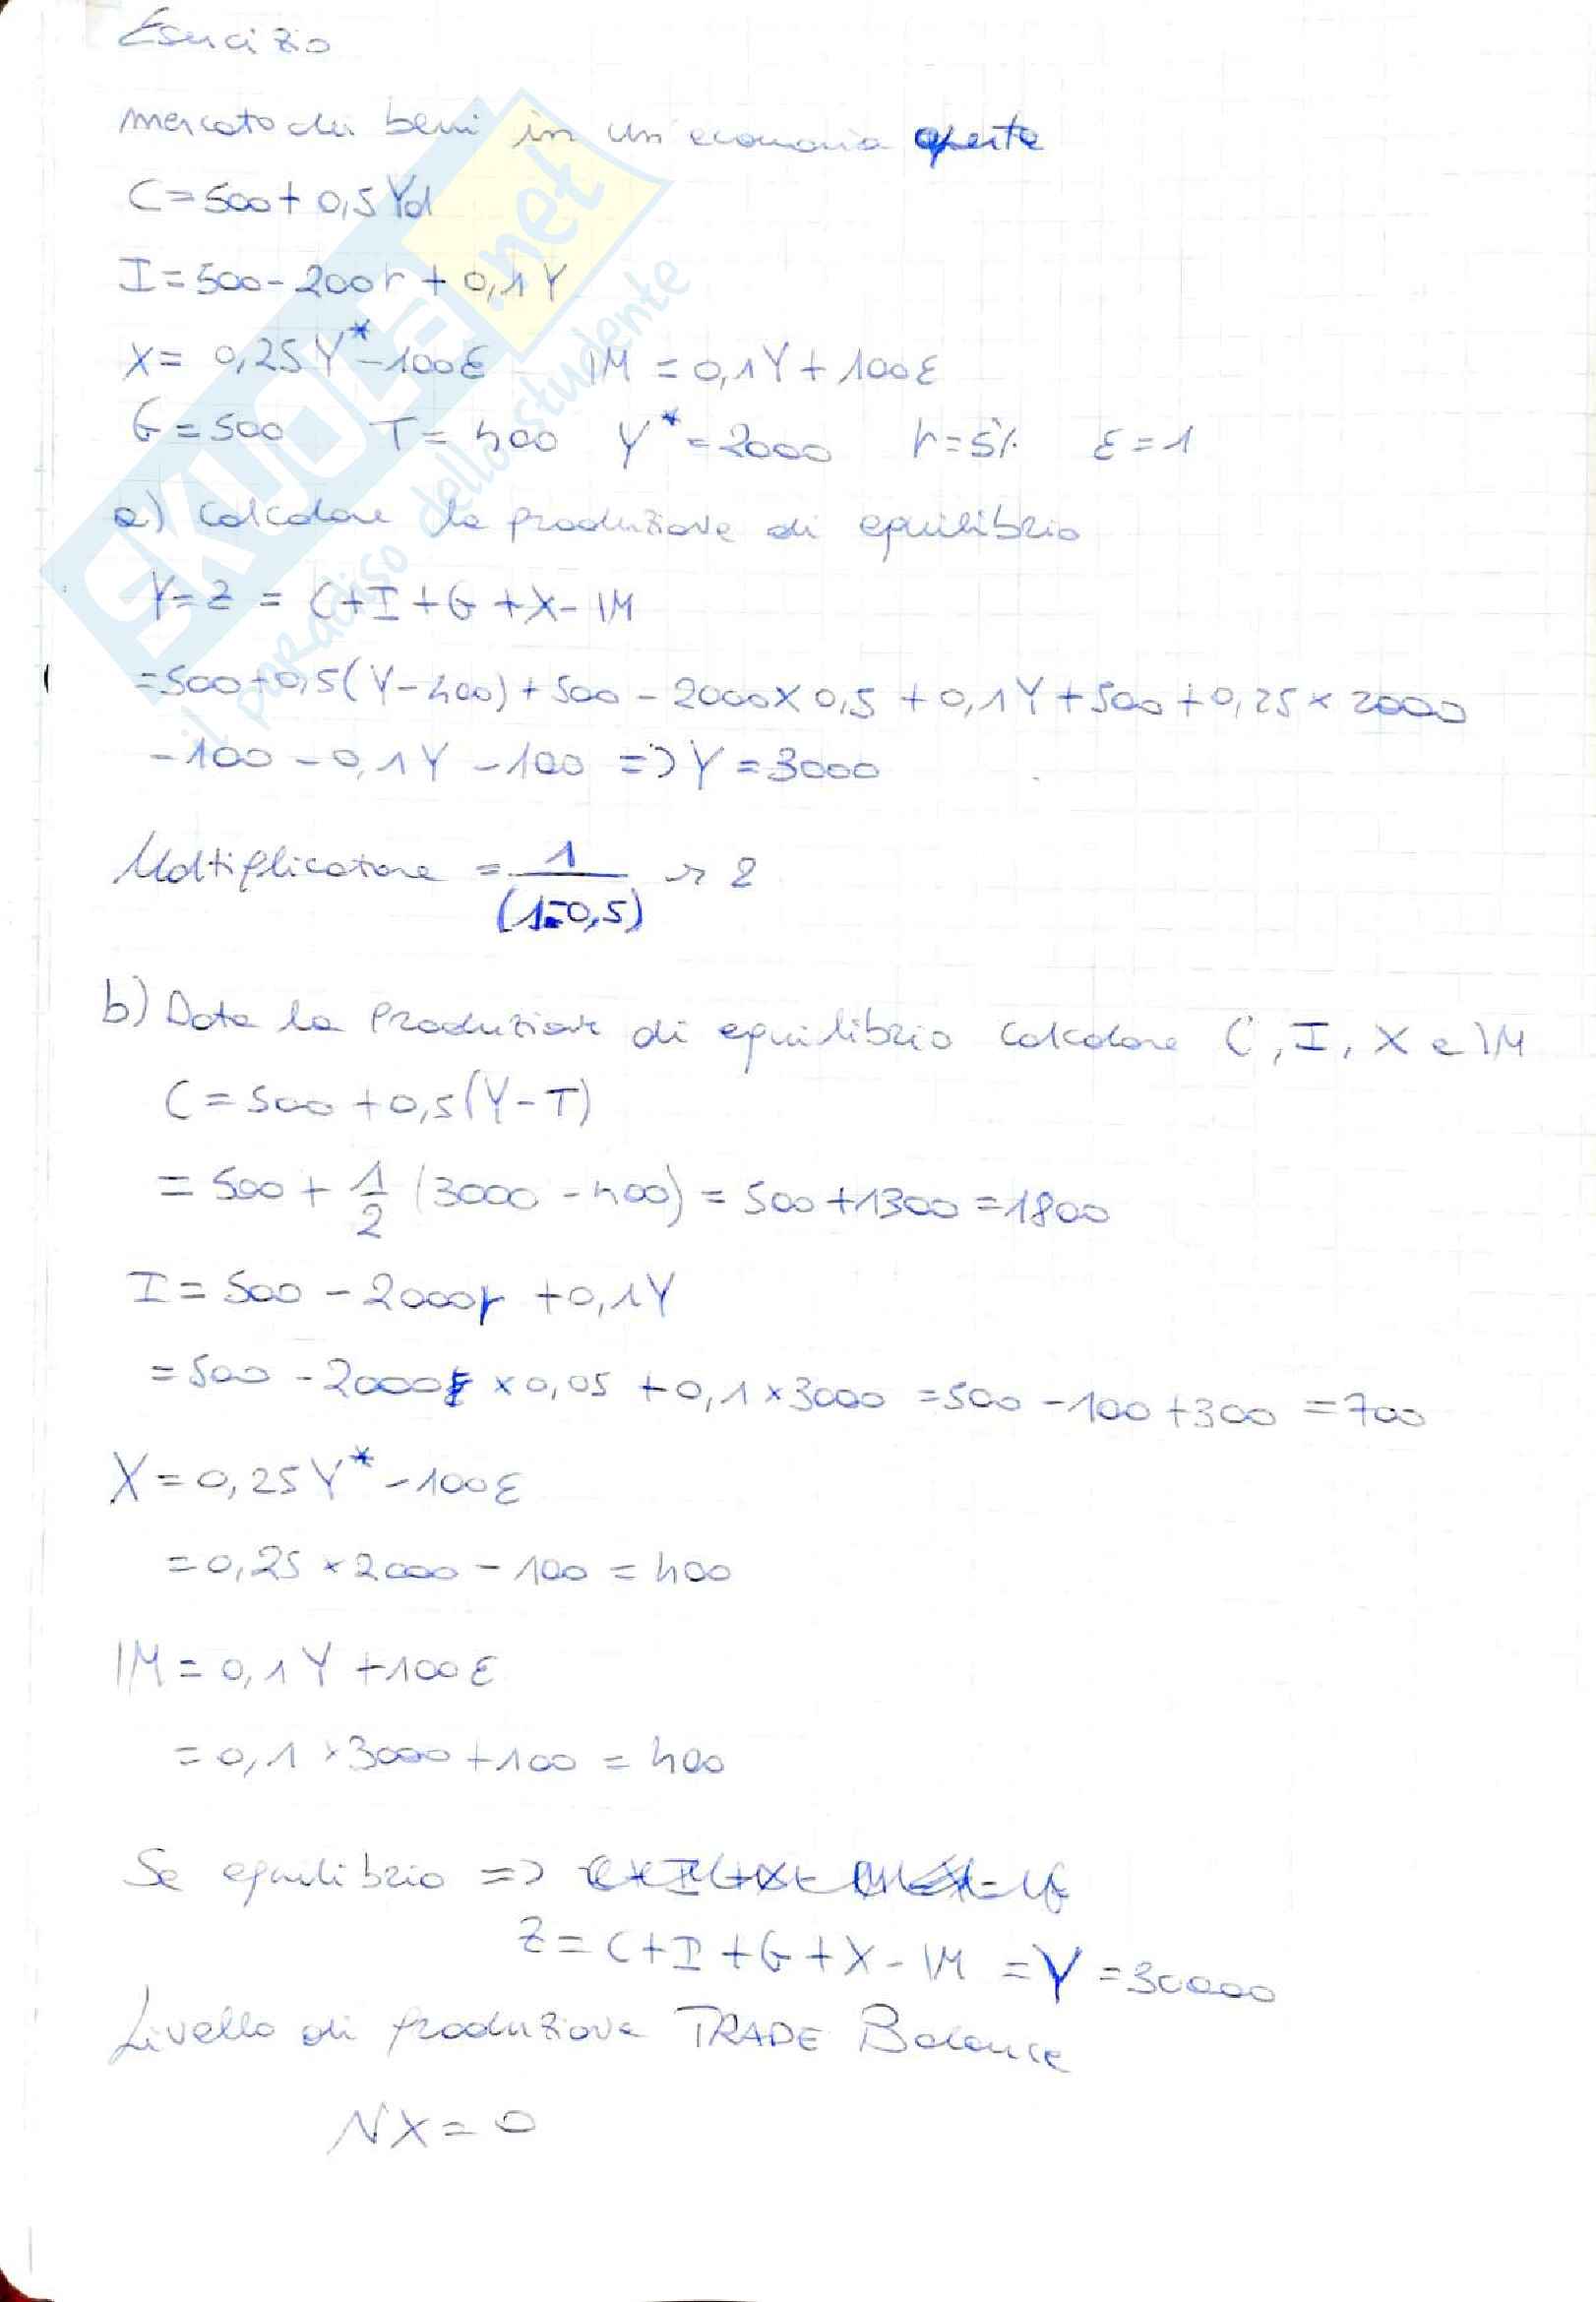 Esercizio
mercato dei beni in un'economia aperta
C=500+0,5Yd
I=500-200r+0,1Y
X= 0,25Y*-100ε IM=0,1Y+100ε
G=500 T=400 Y*=2000 r=5% ε=1
a) Calcolare la produzione di equilibrio
Y=Z = C+I+G+X-IM
=500+0,5(Y-400)+500-2000×0,5+0,1Y+500+0,25×2000
-100-0,1Y-100 => Y=3000
Moltiplicatore = 1/(1-0,5) → 2
b) Data la produzione di equilibrio calcolare C, I, X e IM
C=500+0,5(Y-T)
=500+1/2(3000-400)=500+1300=1800
I=500-2000r+0,1Y
=500-2000×0,05+0,1×3000=500-100+300=700
X=0,25Y*-100ε
=0,25×2000-100=400
IM=0,1Y+100ε
=0,1×3000+100=400
Se equilibrio =>
Z=C+I+G+X-IM=Y=30000
Livello di produzione TRADE Balance
NX=0
SKUOLA.net
il paradiso dello studente